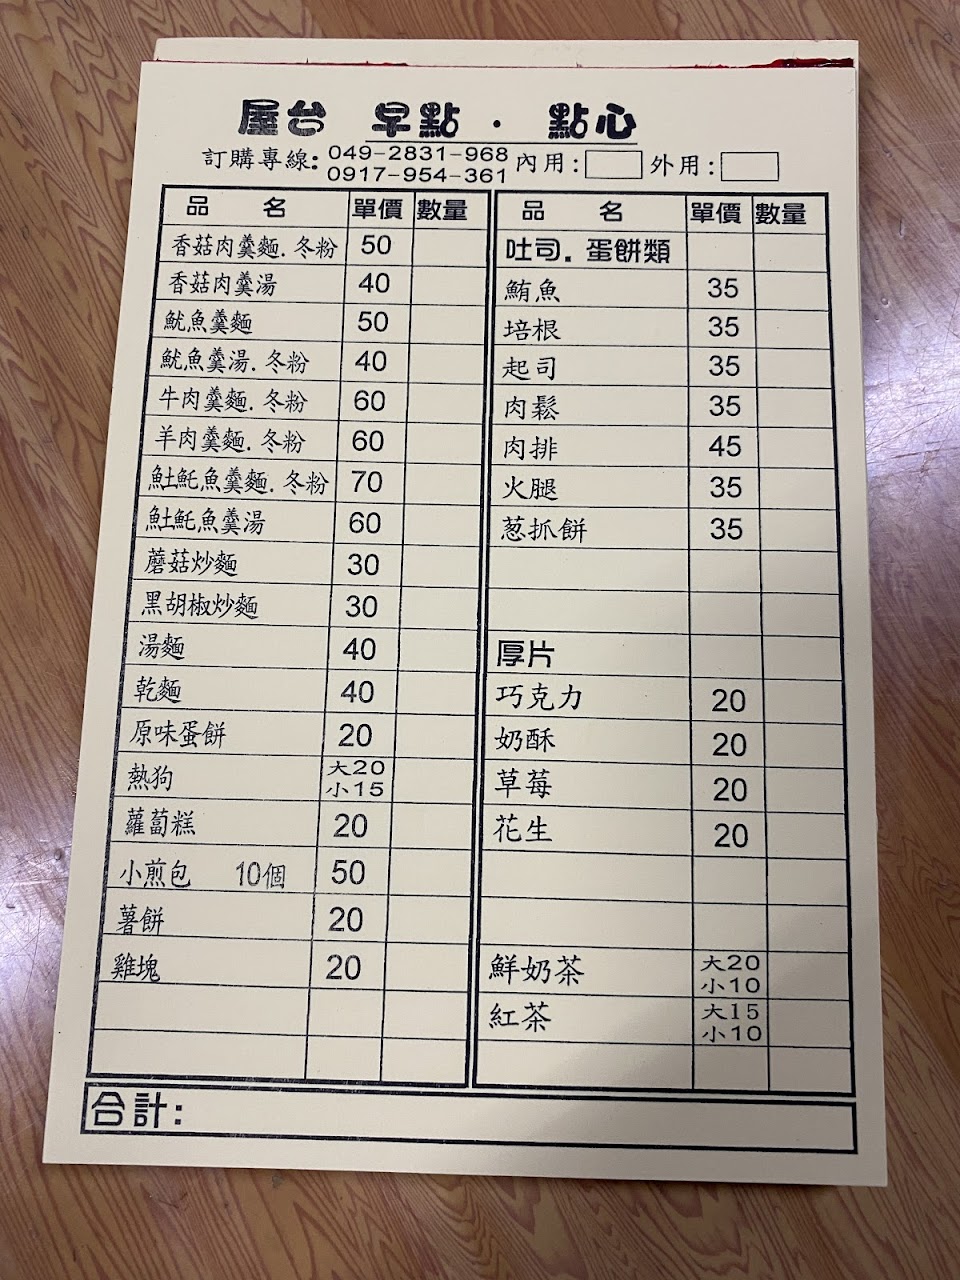 屋台 早點 · 點心
訂購專線: 049-2831-968 0917-954-361 內用: 外用:
品 名 單價 數量
香菇肉羹麵.冬粉 50
香菇肉羹湯 40
魷魚羹麵 50
魷魚羹湯.冬粉 40
牛肉羹麵.冬粉 60
羊肉羹麵.冬粉 60
魠魠魚羹麵.冬粉 70
魠魠魚羹湯 60
蘑菇炒麵 30
黑胡椒炒麵 30
湯麵 40
乾麵 40
原味蛋餅 20
熱狗 大20 小15
蘿蔔糕 20
小煎包 10個 50
薯餅 20
雞塊 20
品 名 單價 數量
吐司.蛋餅類
鮪魚 35
培根 35
起司 35
肉鬆 35
肉排 45
火腿 35
葱抓餅 35
厚片
巧克力 20
奶酥 20
草莓 20
花生 20
鮮奶茶 大20 小10
紅茶 大15 小10
合計: